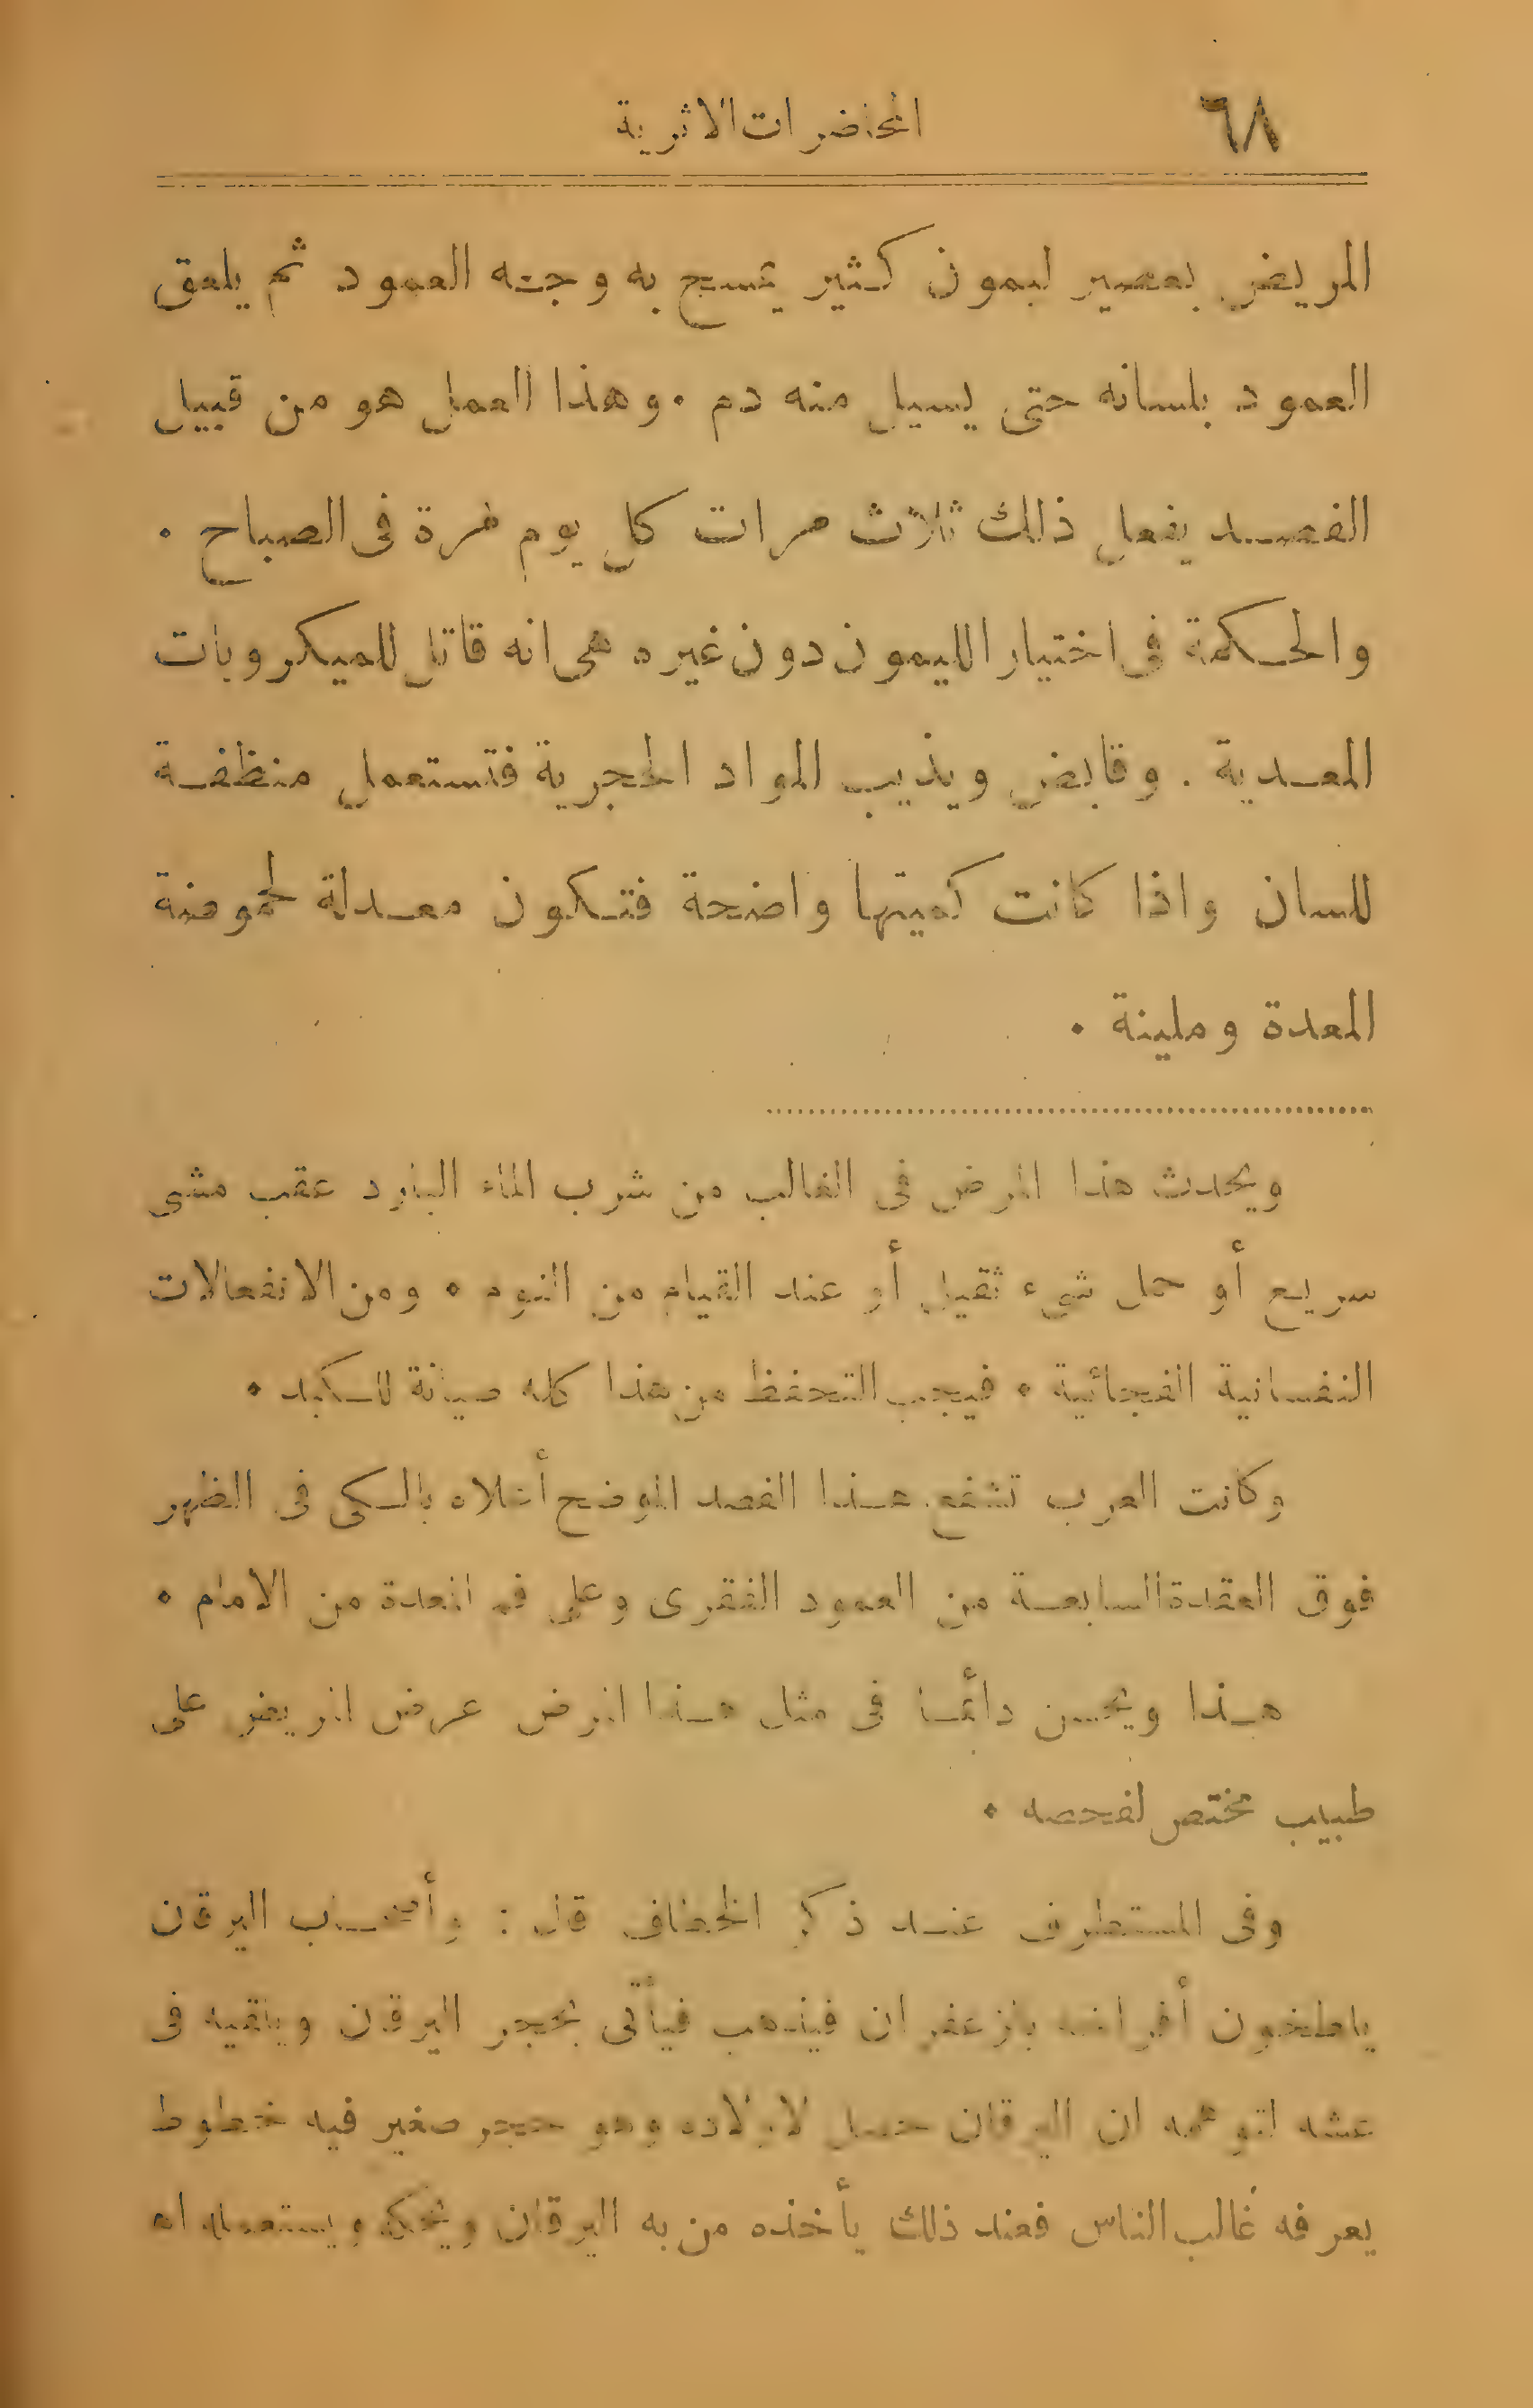 ٦٨
المحاضرات الاثرية
المريض بعصير ليمون كثير يمسح به وجه العمود ثم يلعق
العمود بلسانه حتى يسيل منه دم . وهذا العمل هو من قبيل
الفصد يفعل ذلك ثلاث مرات كل يوم مرة فى الصباح .
والحكمة فى اختيار الليمون دون غيره هى انه قاتل للميكروبات
المعدية . وقابض ويذيب المواد الحجرية فتستعمل منظفة
للسان واذا كانت كميتها واضحة فتكون معدلة لحموضة
المعدة وملينة .
ويحدث هذا المرض فى الغالب من شرب الماء البارد عقب مشى
سريع أو حمل شىء ثقيل أو عند القيام من النوم . ومن الانفعالات
النفسانية الفجائية . فيجب التحفظ من هذا كله صيانة للكبد .
وكانت العرب تشفع هذا الفصد الموضح أعلاه بالكى فى الظهر
فوق العقدة السابعة من العمود الفقرى وعلى فم المعدة من الامام .
هذا ويحسن دائما فى مثل هذا المرض عرض المريض على
طبيب مختص لفحصه .
وفى المستطرف عند ذكر الخطاف قال : وأصحاب اليرقان
يلطخون أفراخه بالزعفران فيذهب فيأتى بحجر اليرقان ويلقيه فى
عشه لتوهمه ان اليرقان حصل لاولاده وهو حجر صغير فيه خطوط
يعرفه غالب الناس فعند ذلك يأخذه من به اليرقان ويحكه ويستعمله اه